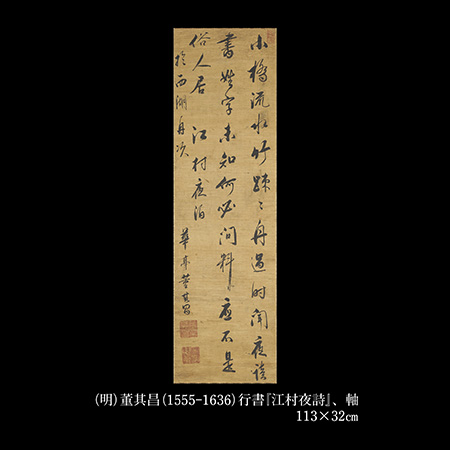 小橋流水竹踈〻舟過時聞夜讀
書姓字未知何必問料應不是
俗人居　江村夜泊
於西湖舟次　華亭董其昌
(明)董其昌(1555-1636)行書『江村夜詩』、軸
113×32㎝